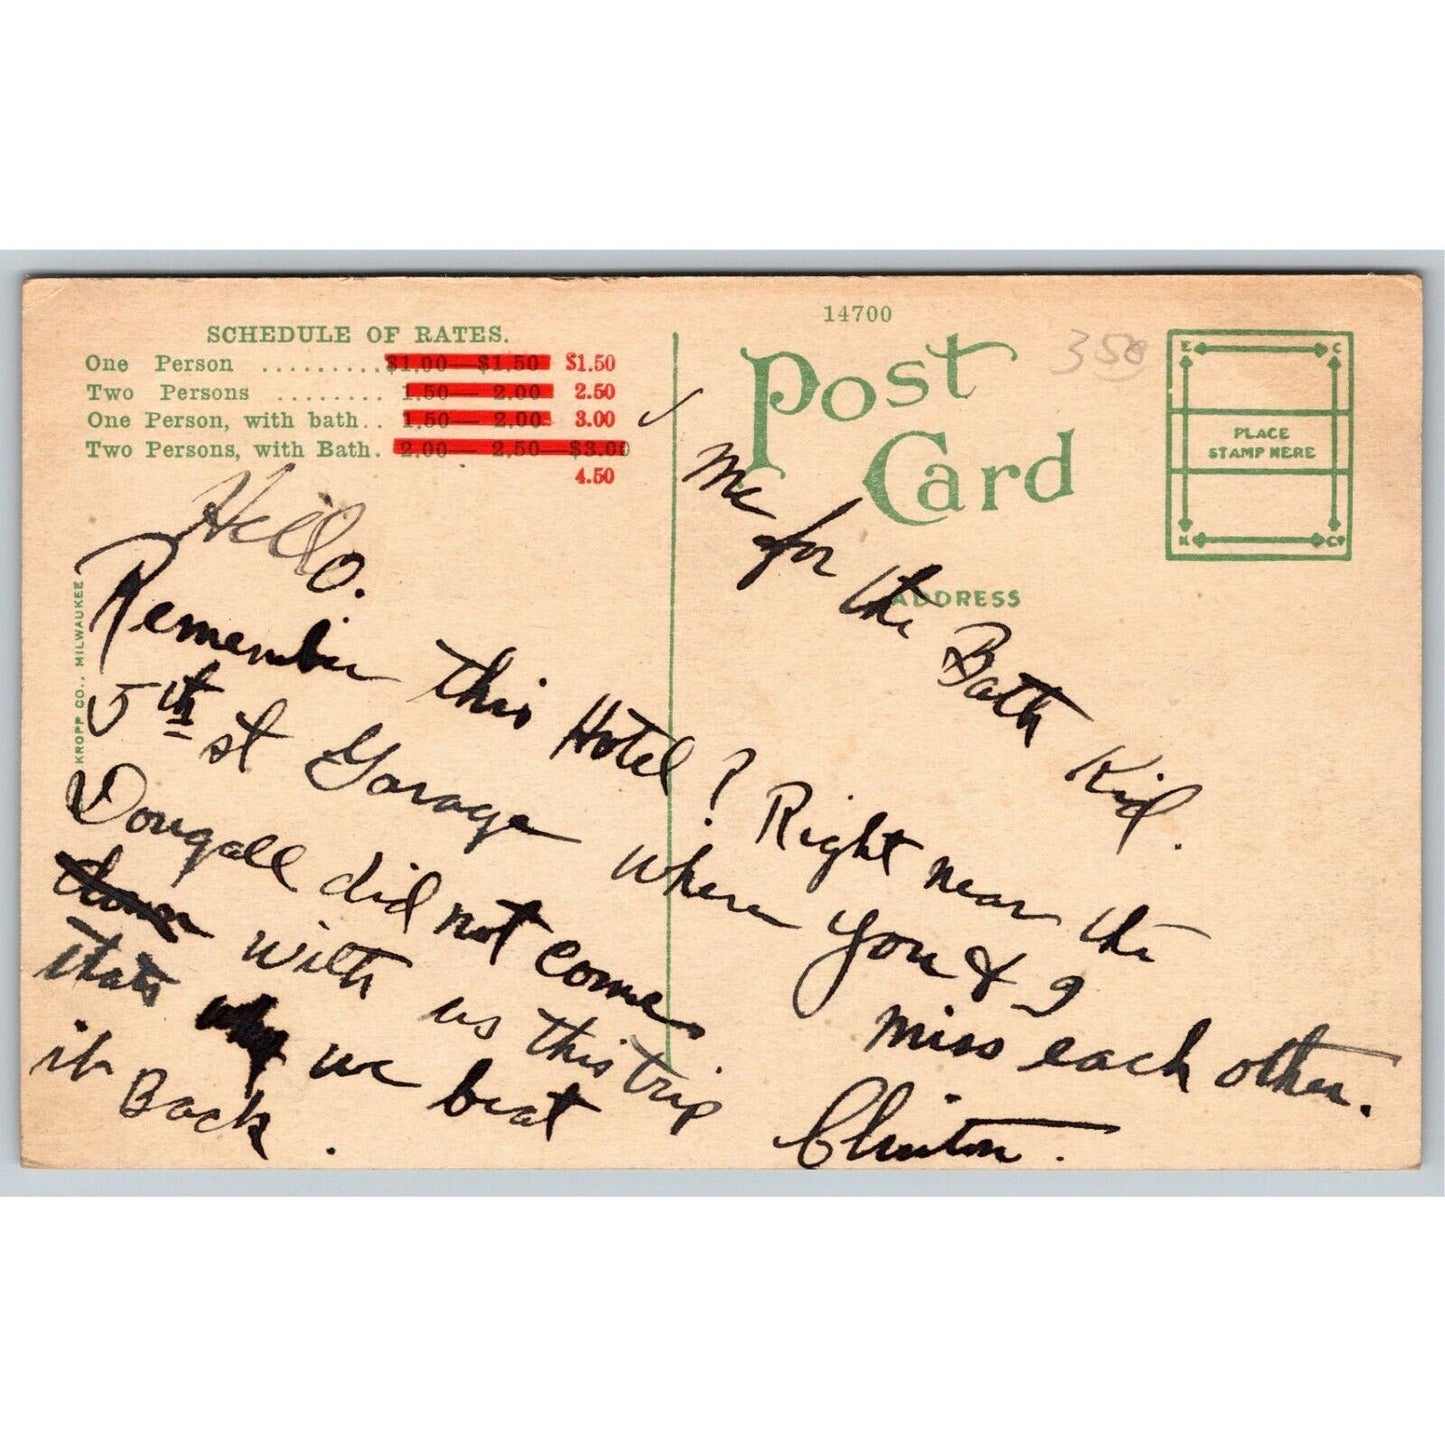 14700
SCHEDULE OF RATES.
One Person ......... $1.00—$1.50 $1.50
Two Persons ........ 1.50— 2.00 2.50
One Person, with bath.. 1.50— 2.00 3.00
Two Persons, with Bath. 2.00— 2.50—$3.00
4.50
Post
Card
350
E C
PLACE
STAMP HERE
K Co
ADDRESS
KROPP CO., MILWAUKEE
Me for the Bath Kid.
Hello.
Remember this Hotel? Right near the
5th st Garage where you & I miss each other.
Dougall did not come
down with us this trip
thats why we beat
it Back.
Clinton.